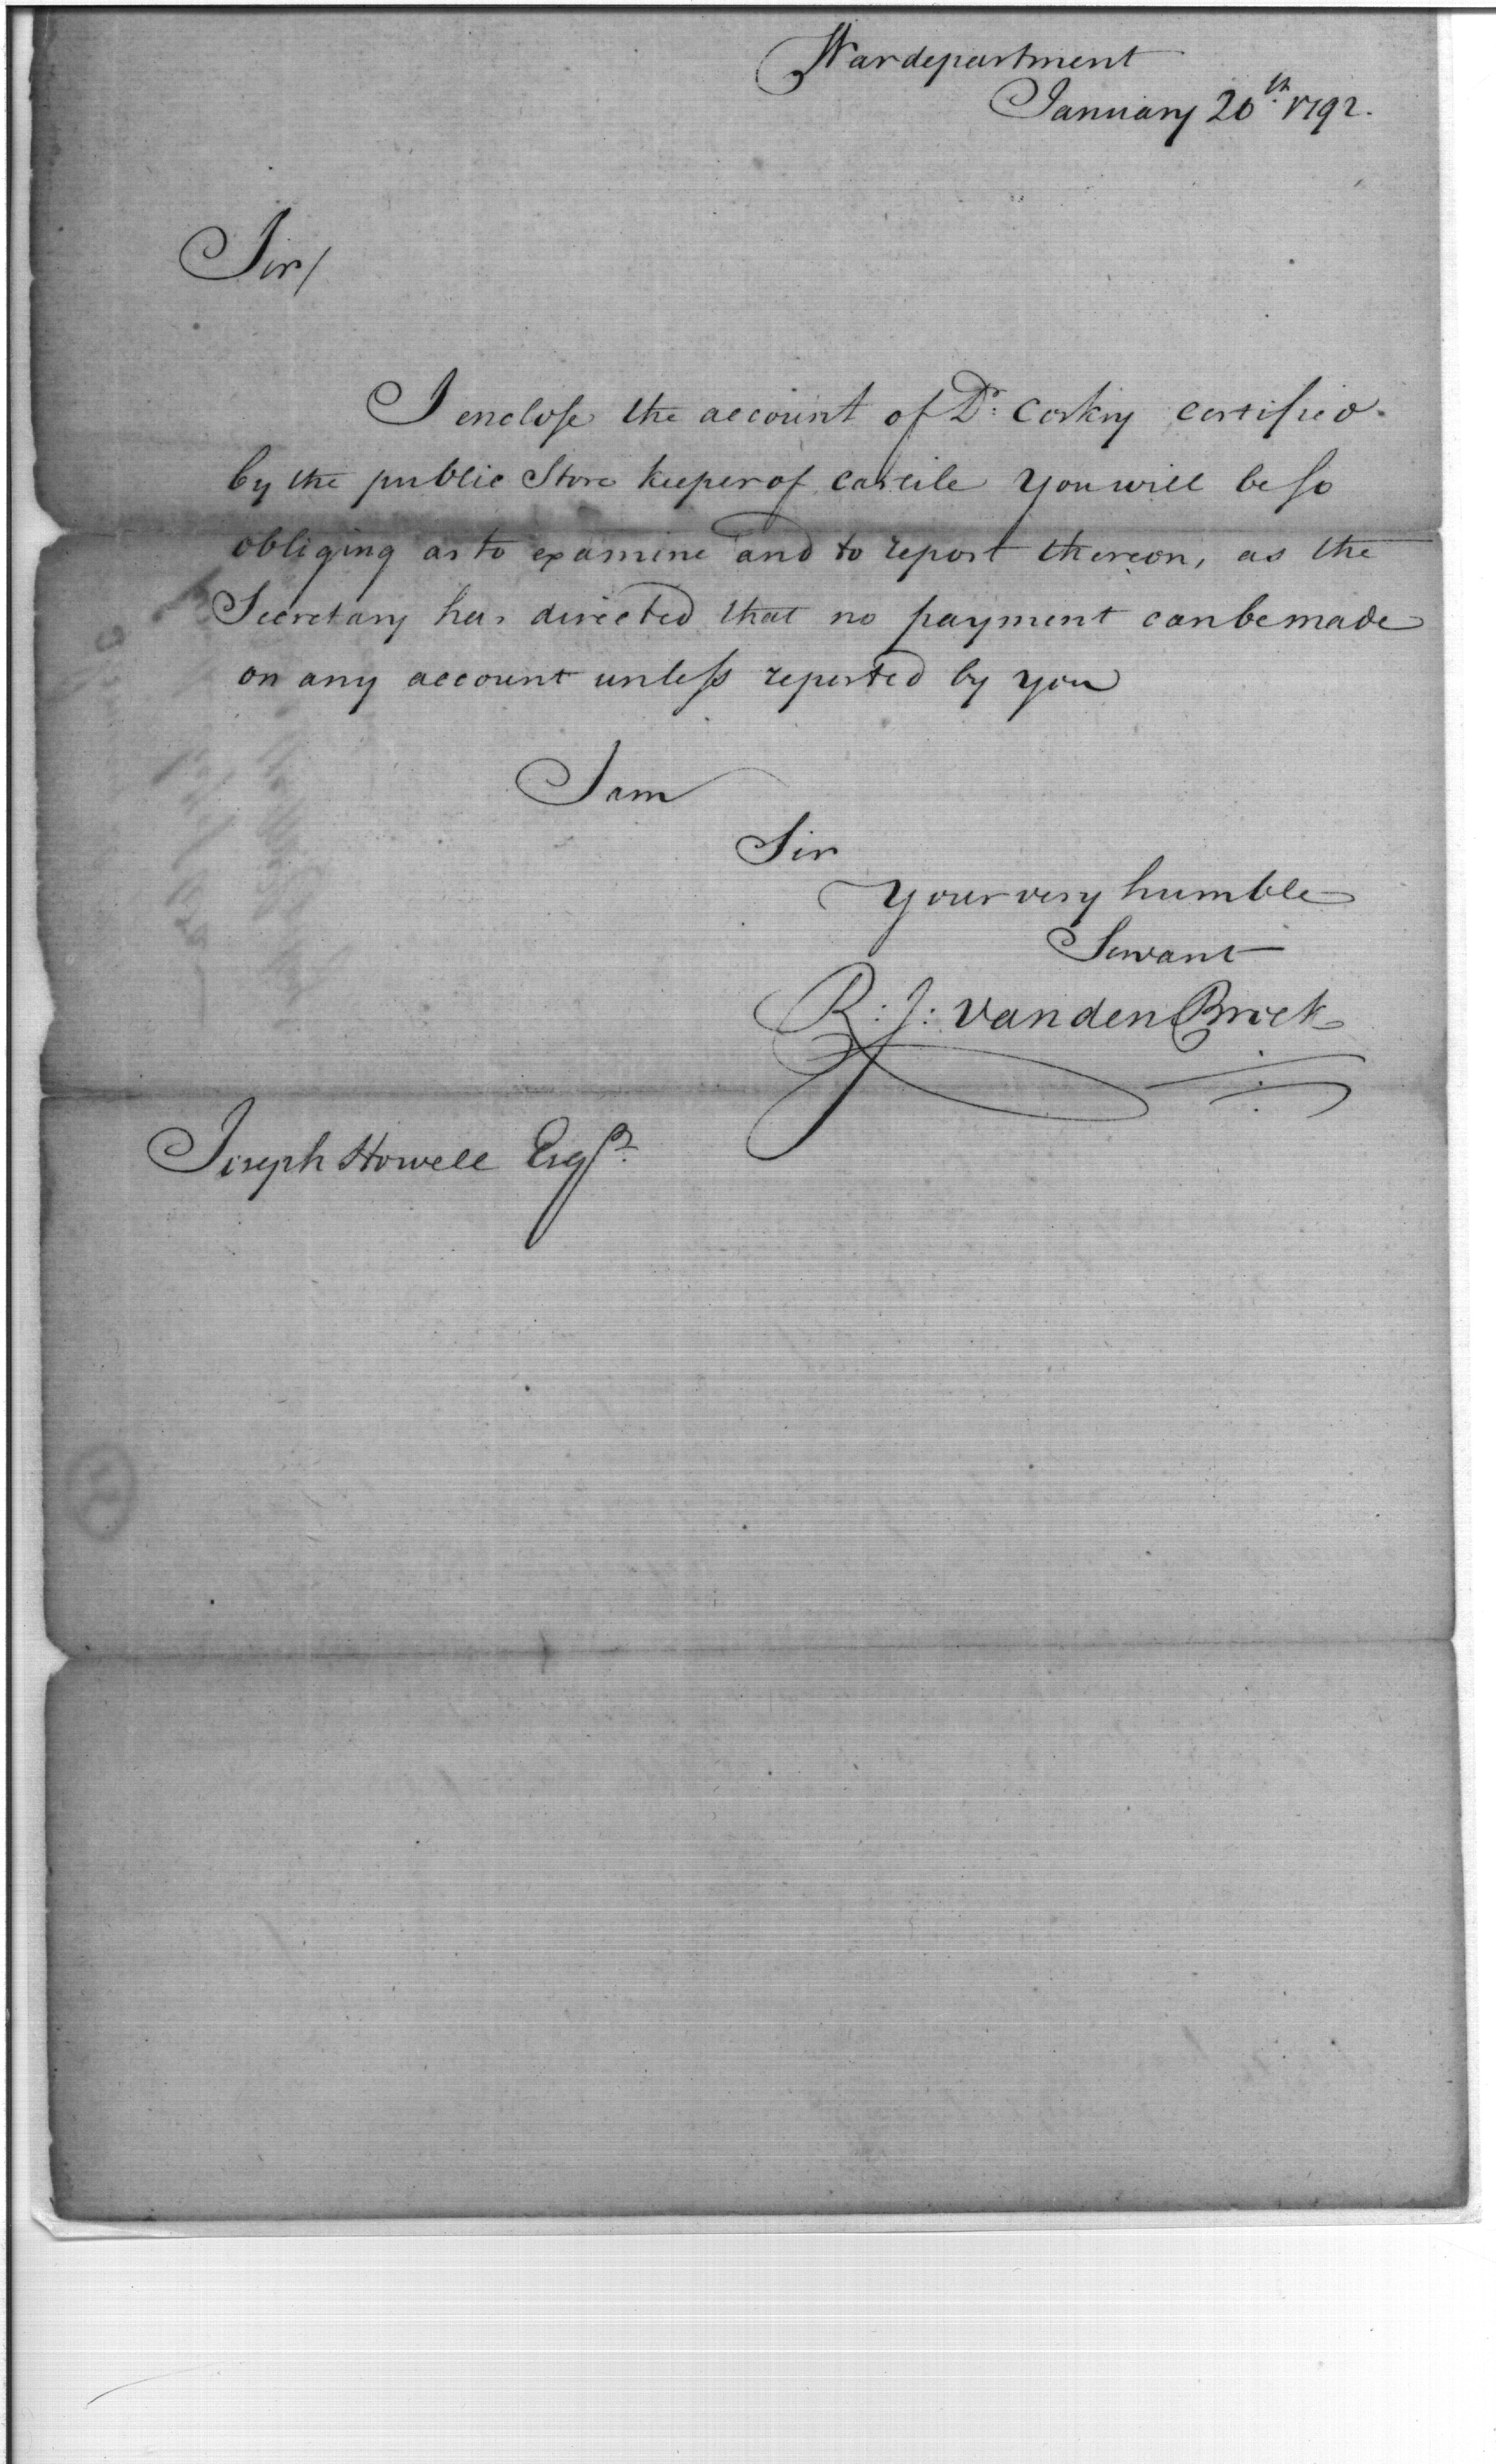 War department
January 20th. 1792.
Sir/
I enclose the account of Dr: Corkry certified
by the public Store keeper of Carlile you will be so
obliging as to examine and to report thereon, as the
Secretary has directed that no payment can be made
on any account unless reported by you
I am
Sir
your very humble
Servant
R: J: vanden Broek
Joseph Howell Esqr.